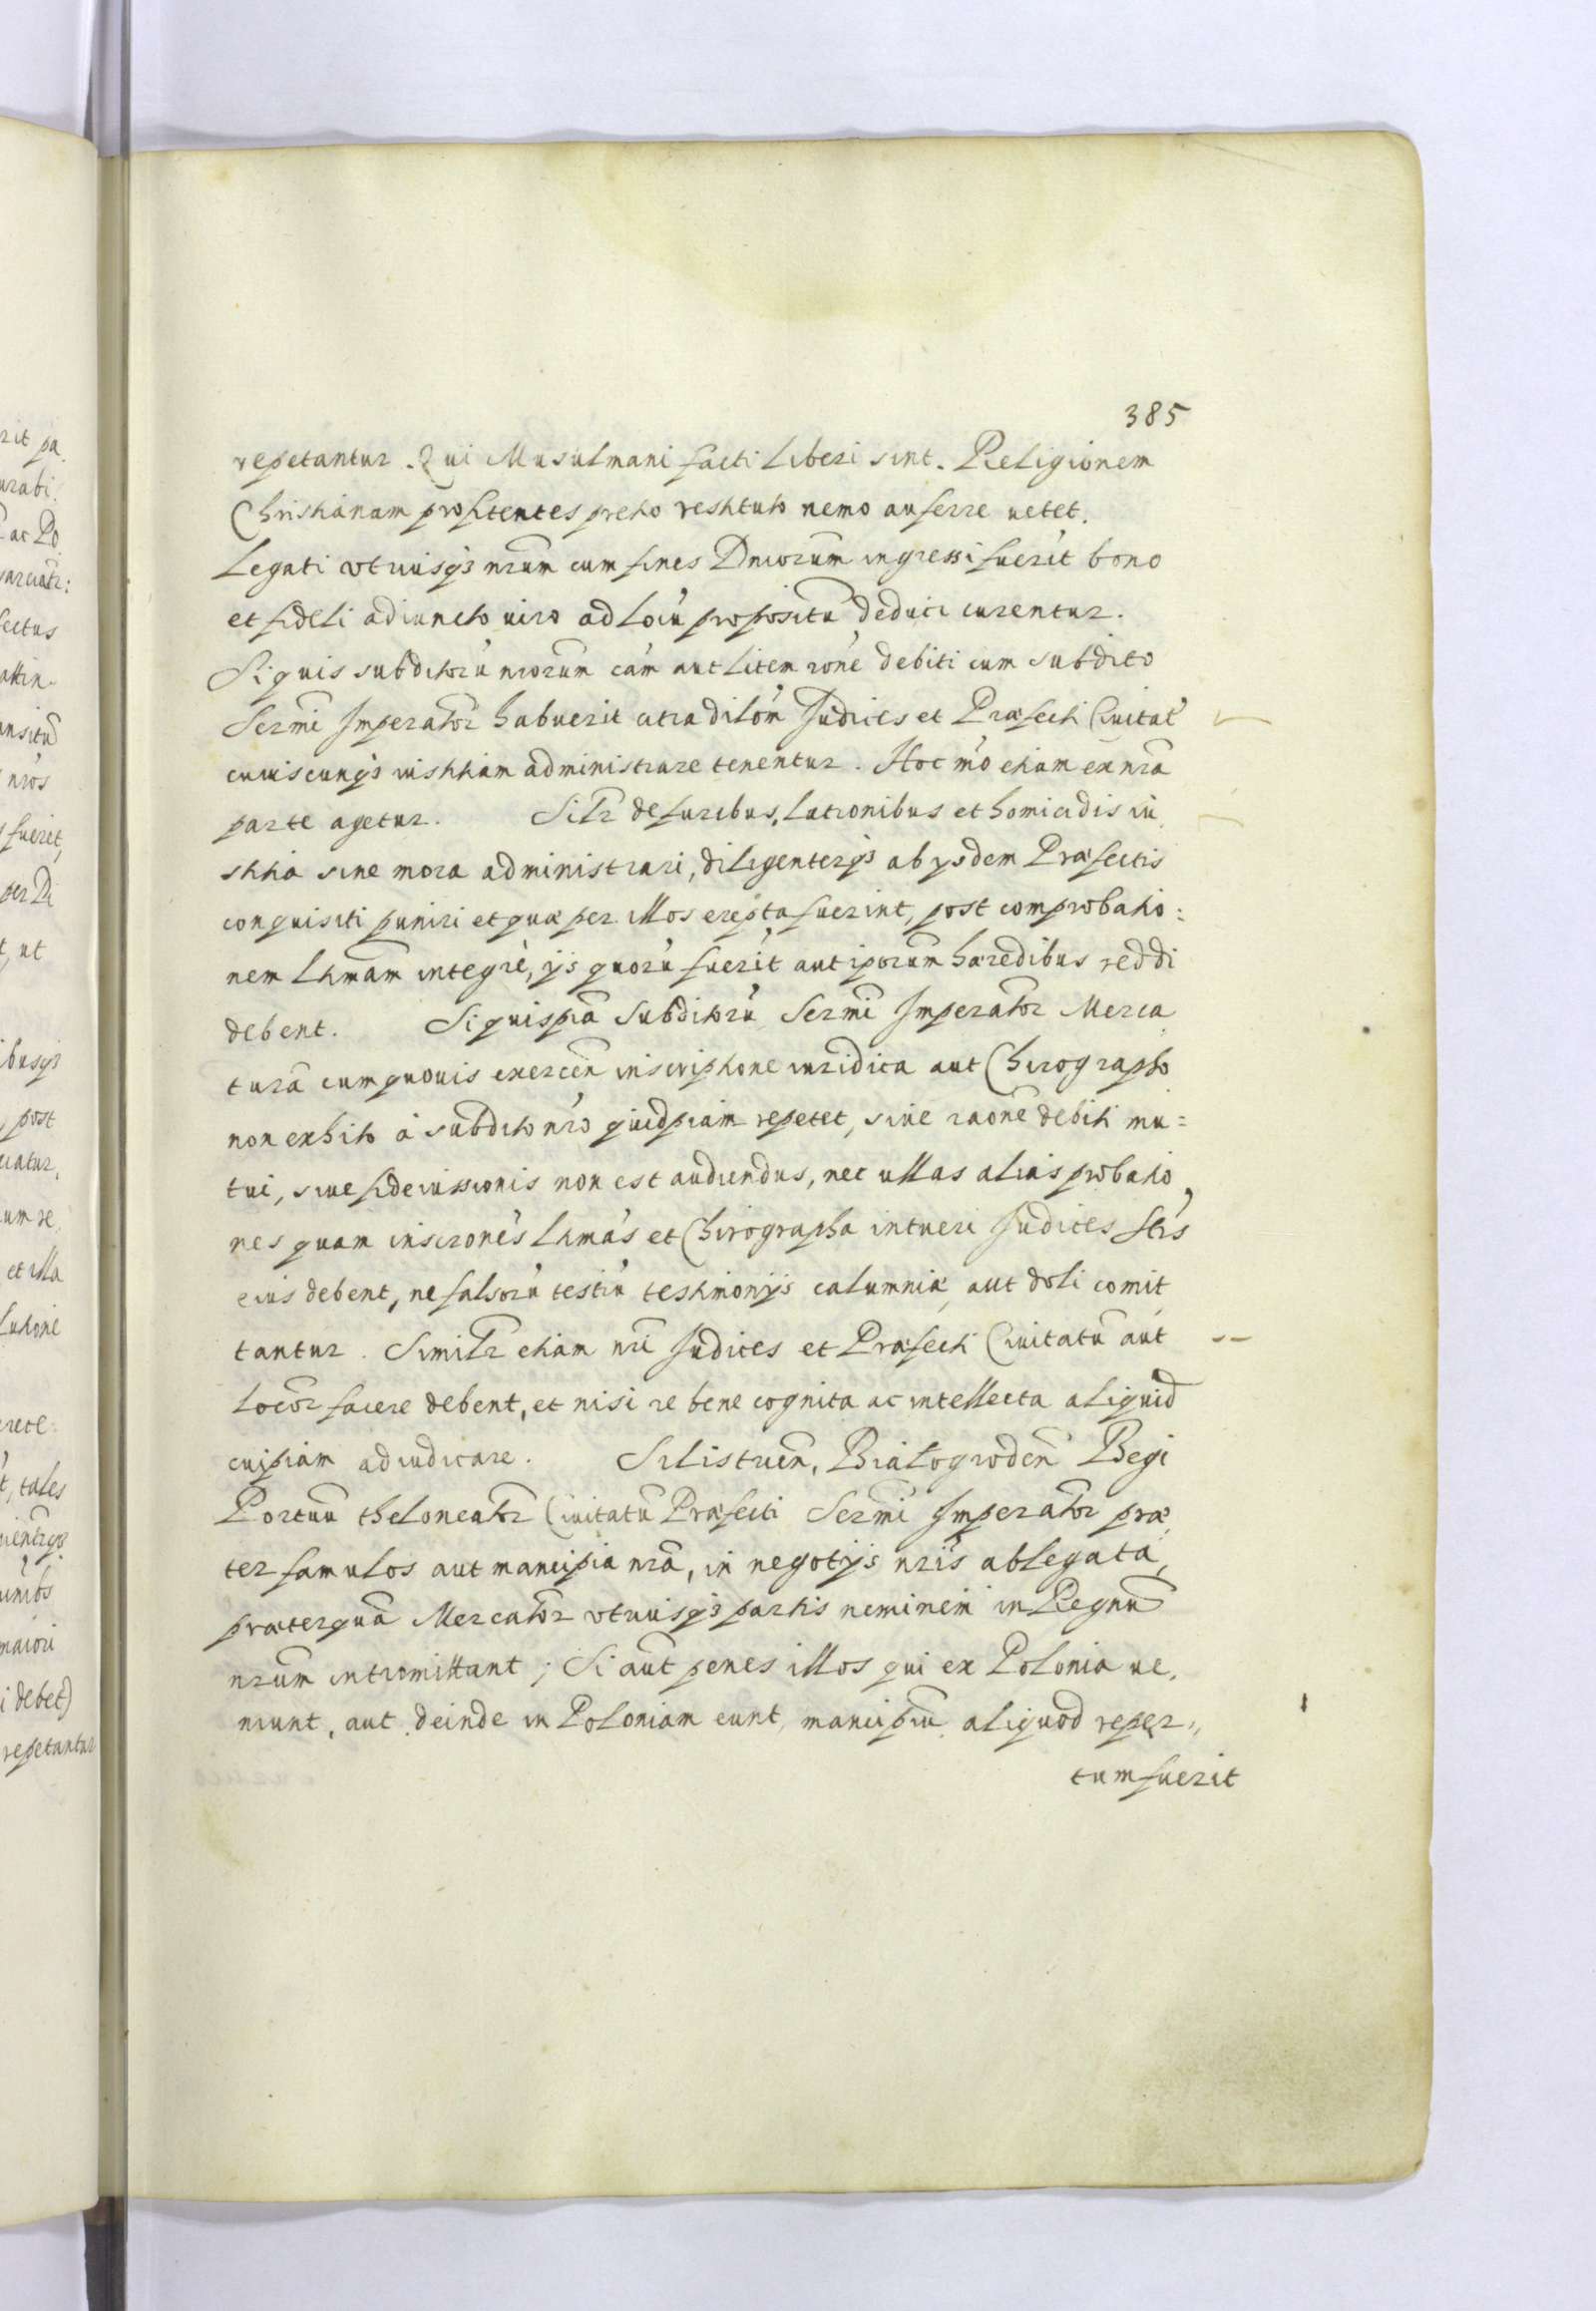 385
repetantur. Qui Musulmani facti liberi sint. Religionem
Christianam profitentes pretio restituto nemo auferre uetet.
Legati vtriusq3 nrũm cum fines Dniorum ingressi fuerĩt bono
et fideli adiuncto uiro ad locũ propositũ deduci curentur.
Si quis subditorũ nrorum cãm aut litem rõne debiti cum subdito
Sermi Imperator habuerit citra dilõm Judices et Præfecti Ciuitat
cuiuscunq3 iustitiam administrare tenentur. Hoc mõ etiam ex nrã
parte agetur. Silr de furibus, latronibus et homicidis iu
stitia sine mora administrari, diligenterq3 ab ysdem Præfectis
conquisiti puniri et quæ per illos erepta fuerint, post comprobatio:
nem ltimam integrè, ijs quorũ fuerĩt aut iporum hæredibus reddi
debent. Si quispiã Subditorũ Sermi Imperator Merca
turã cum quouis exercen inscriptione iuridica aut Chirographo
non exhibito à subdito nrõ quidpiam repetet, siue raõne debiti mu=
tui, siue fideiussionis non est audiendus, nec ullas alias probatio
nes quam inscrones ltimas et Chirographa intueri Judices
eius debent, ne falsorũ testiũ testimonijs calumniæ aut doli comit
tantur. Similr etiam nri Judices et Præfecti Ciuitatũ aut
locor facere debent, et nisi re bene cognita ac intellecta aliquid
cuipiam adiudicare. Silistrien, Białogroden Begi
Portuũ theloneator Ciuitatũ Præfecti Sermi Imperator præ
ter famulos aut mancipia nrã, in negotijs nrijs ablegata,
præterquã Mercator vtriusq3 partis neminem in Regnũ
nrũm intromittant; Si aut penes illos qui ex Polonia ue,
niunt, aut deinde in Poloniam eunt, mancipiũ aliquod reper„
tum fuerit